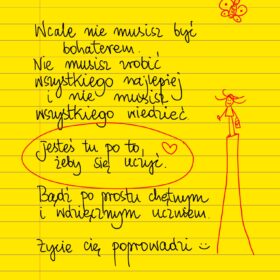 Wcale nie musisz być
bohaterem.
Nie musisz zrobić
wszystkiego najlepiej
i nie musisz
wszystkiego wiedzieć
Jesteś tu po to,
żeby się uczyć.
Bądź po prostu chętnym
i wdzięcznym uczniem.
Życie cię poprowadzi